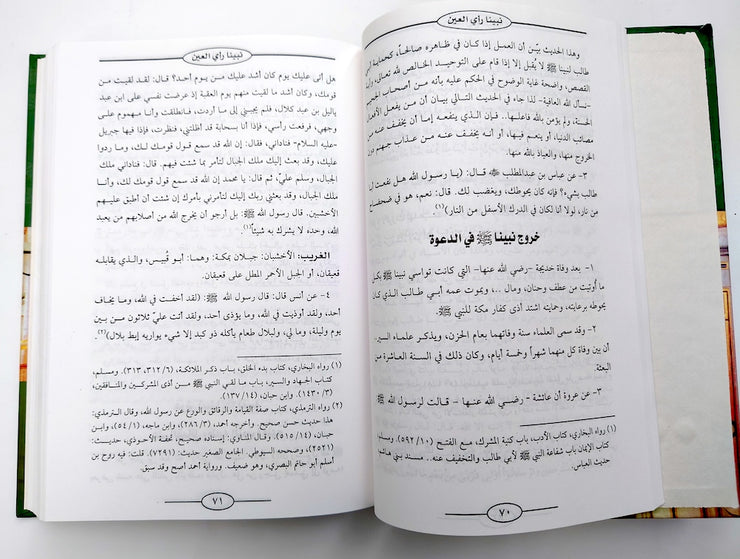 نبينا رأي العين
وهذا الحديث بيّن أن العمل إذا كان في ظاهره صالحاً، كحماية أبي
طالب لنبينا ﷺ لا يُقبل إلا إذا قام على التوحيد الخالص لله تعالى، وأن
القصص، واضحة غاية الوضوح في الحكم عليه بأنه من أصحاب الجحيم
-نسأل الله العافية- لذا جاء في الحديث التالي بيان أن من يفعل الأفعال
الحسنة، ولم يؤمن بالله فاعلها.. فإن الذي ينفعه إما أن يخفف عنه من
مصائب الدنيا، أو ينعم فيها، أو أنه يخفف عنه من عذاب جهنم دون
الخروج منها، والعياذ بالله منها.
٣- عن عباس بن عبدالمطلب ﷺ قال: (يا رسول الله هل نفعت أبا
طالب بشيء؟ فإنه كان يحوطك، ويغضب لك. قال: نعم، هو في ضحضاح
من نار، لولا أنا لكان في الدرك الأسفل من النار)(١)
خروج نبينا ﷺ في الدعوة
١- بعد وفاة خديجة -رضي الله عنها- التي كانت تواسي نبينا ﷺ بكل
ما أوتيت من عطف وحنان، ومال ..، وبموت عمه أبي طالب الذي كان
يحوطه برعايته، وحمايته اشتد أذى كفار مكة للنبي ﷺ.
٢- وقد سمى العلماء سنة وفاتهما بعام الحزن، ويذكر علماء السير..
أن بين وفاة كل منهما شهراً وخمسة أيام، وكان ذلك في السنة العاشرة من
البعثة.
٣- عن عروة أن عائشة -رضي الله عنها- قالت لرسول الله ﷺ
(١) رواه البخاري، كتاب الأدب، باب كنية المشرك، مع الفتح (٥٩٢/١٠)، ومسلم،
كتاب الإيمان باب شفاعة النبي ﷺ لأبي طالب والتخفيف عنه.. مسند بني هاشم
حديث العباس.
٧٠
نبينا رأي العين
هل أتى عليك يوم كان أشد عليك من يوم أحد؟ قال: لقد لقيت من
قومك، وكان أشد ما لقيت منهم يوم العقبة إذ عرضت نفسي على ابن عبد
ياليل بن عبد كلال، فلم يجبني إلى ما أردت، فانطلقت وأنا مهموم على
وجهي، فرفعت رأسي، فإذا أنا بسحابة قد أظلتني، فنظرت، فإذا فيها جبريل
-عليه السلام- فناداني، فقال: إن الله قد سمع قول قومك لك، وما ردوا
عليك، وقد بعث إليك ملك الجبال لتأمره بما شئت فيهم. قال: فناداني ملك
الجبال، وسلم عليّ، ثم قال: يا محمد إن الله قد سمع قول قومك لك، وأنا
ملك الجبال، وقد بعثني ربك إليك لتأمرني بأمرك إن شئت أن أطبق عليهم
الأخشبين. قال رسول الله ﷺ: بل أرجو أن يخرج الله من أصلابهم من يعبد
الله، وحده لا يشرك به شيئاً)(١)
الغريب: الأخشبان: جبلان بمكة: وهما: أبو قُبيس، والذي يقابله
قعيقان، أو الجبل الأحمر المطل على قعيقان.
٤- عن أنس قال: قال رسول الله ﷺ: (لقد أخفت في الله، وما يخاف
أحد، ولقد أوذيت في الله، وما يؤذى أحد، ولقد أتت عليّ ثلاثون من بين
يوم وليلة، وما لي، ولبلال طعام يأكله ذو كبد إلا شيء يواريه إبط بلال)(٢).
(١) رواه البخاري، كتاب بدء الخلق، باب ذكر الملائكة، (٣١٢/٦، ٣١٣). ومسلم،
كتاب الجهاد والسير، باب ما لقي النبي ﷺ من أذى المشركين والمنافقين،
(١٤٣٠/٣)، وابن حبان، (١٣٧/١٤).
(٢) رواه الترمذي، كتاب صفة القيامة والرقائق والورع عن رسول الله، وقال الترمذي:
هذا حديث حسن صحيح. وأخرجه أحمد، (٢٨٦/٣)، وابن ماجه، (٥٤/١)، وابن
حبان، (٥١٥/١٤). وقال المناوي: إسناده صحيح، تحفة الأحوذي، حديث:
(٢٥٢١)، وصححه السيوطي. الجامع الصغير حديث: (٧٢٩١). قلت: فيه روح بن
أسلم أبو حاتم البصري، وهو ضعيف. ورواية أحمد أصح وقد سبق.
٧١